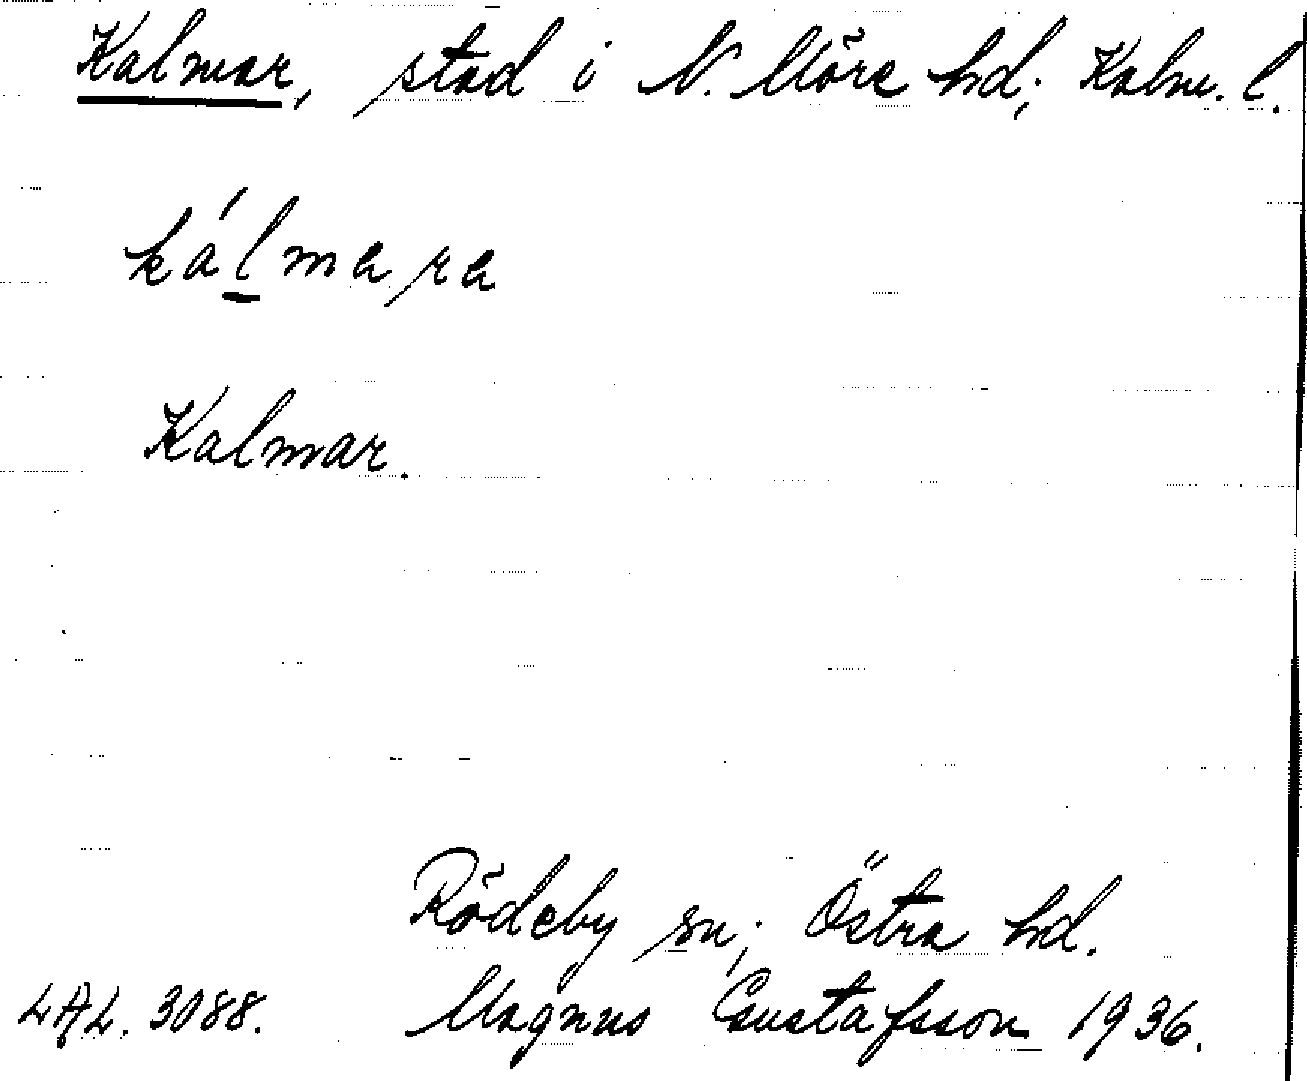 Kalmar, stad i N. Möre hd; Kalm. l.
ká́l̲mara
Kalmar.
Rödeby sn; Östra hd.
LAL. 3088. Magnus Gustafsson 1936.